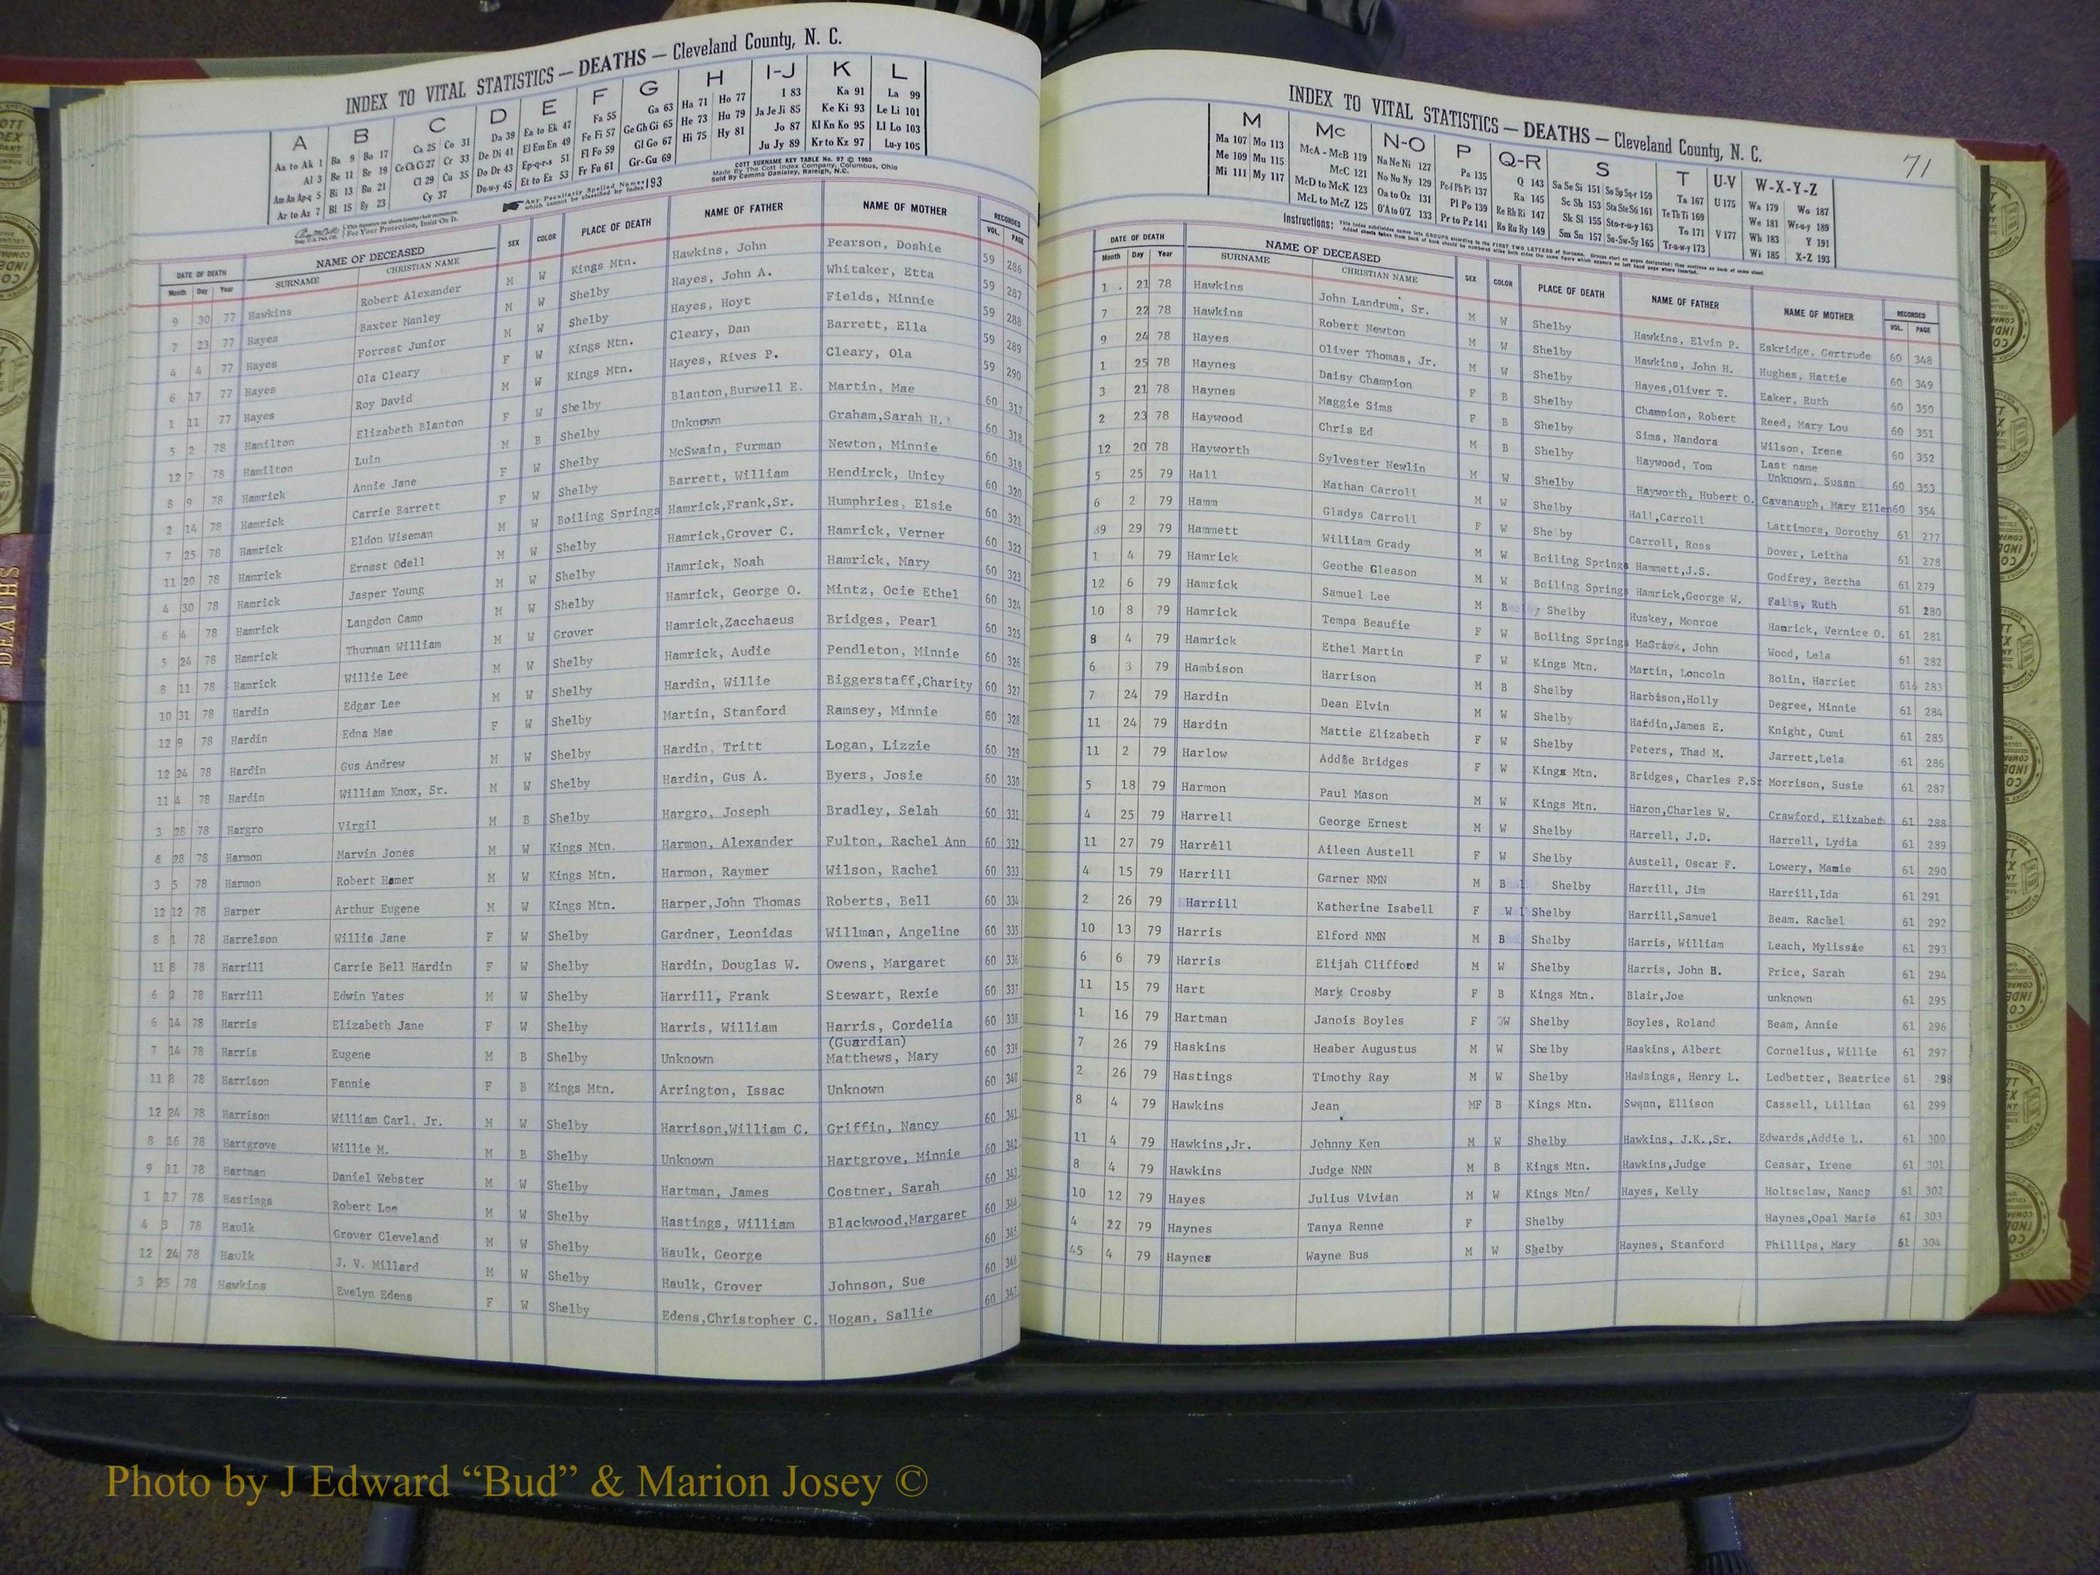 INDEX TO VITAL STATISTICS — DEATHS — Cleveland County, N. C.
A B C D E F G H I-J K L
Aa to Ak 1 Ba 9 Bo 17 Ca 25 Co 31 Da 39 Ea to Ek 47 Fa 55 Ga 63 Ha 71 Ho 77 I 83 Ka 91 La 99
Al 3 Be 11 Br 19 Ce Ch Ci 27 Cr 33 De Di 41 El Em En 49 Fe Fi 57 Ge Gh Gi 65 He 73 Hu 79 Ja Je Ji 85 Ke Ki 93 Le Li 101
Am An Ap-q 5 Bi 13 Bu 21 Cl 29 Cu 35 Do Dr 43 Ep-q-r-s 51 Fl Fo 59 Gl Go 67 Hi 75 Hy 81 Jo 87 Kl Kn Ko 95 Ll Lo 103
Ar to Az 7 Bl 15 By 23 Cy 37 Du-w-y 45 Et to Ez 53 Fr Fu 61 Gr-Gu 69 Ju Jy 89 Kr to Kz 97 Lu-y 105
For Your Protection, Insist On It.
Any Peculiarly Spelled Names which cannot be classified by Index 193
COTT SURNAME KEY TABLE No. 97 © 1960
Made By The Cott Index Company, Columbus, Ohio
Sold By Comma Danieley, Raleigh, N.C.
DATE OF DEATH NAME OF DECEASED SEX COLOR PLACE OF DEATH NAME OF FATHER NAME OF MOTHER RECORDED
Month Day Year SURNAME CHRISTIAN NAME VOL. PAGE
9 30 77 Hawkins Robert Alexander M W Kings Mtn. Hawkins, John Pearson, Doshie 59 286
7 23 77 Hayes Baxter Manley M W Shelby Hayes, John A. Whitaker, Etta 59 287
4 4 77 Hayes Forrest Junior M W Shelby Hayes, Hoyt Fields, Minnie 59 288
6 17 77 Hayes Ola Cleary F W Kings Mtn. Cleary, Dan Barrett, Ella 59 289
1 11 77 Hayes Roy David M W Kings Mtn. Hayes, Rives P. Cleary, Ola 59 290
5 2 78 Hamilton Elizabeth Blanton F W Shelby Blanton,Burwell E. Martin, Mae 60 317
12 7 78 Hamilton Luin M B Shelby Unknown Graham,Sarah H. 60 318
8 9 78 Hamrick Annie Jane F W Shelby McSwain, Furman Newton, Minnie 60 319
2 14 78 Hamrick Carrie Barrett F W Shelby Barrett, William Hendirck, Unicy 60 320
7 25 78 Hamrick Eldon Wiseman M W Boiling Springs Hamrick,Frank,Sr. Humphries, Elsie 60 321
11 20 78 Hamrick Ernest Odell M W Shelby Hamrick,Grover C. Hamrick, Verner 60 322
4 30 78 Hamrick Jasper Young M W Shelby Hamrick, Noah Hamrick, Mary 60 323
6 4 78 Hamrick Langdon Camp M W Shelby Hamrick, George O. Mintz, Ocie Ethel 60 324
5 24 78 Hamrick Thurman William M W Grover Hamrick,Zacchaeus Bridges, Pearl 60 325
8 11 78 Hamrick Willie Lee M W Shelby Hamrick, Audie Pendleton, Minnie 60 326
10 31 78 Hardin Edgar Lee M W Shelby Hardin, Willie Biggerstaff,Charity 60 327
12 9 78 Hardin Edna Mae F W Shelby Martin, Stanford Ramsey, Minnie 60 328
12 24 78 Hardin Gus Andrew M W Shelby Hardin, Tritt Logan, Lizzie 60 329
11 4 78 Hardin William Knox, Sr. M W Shelby Hardin, Gus A. Byers, Josie 60 330
3 28 78 Hargro Virgil M B Shelby Hargro, Joseph Bradley, Selah 60 331
8 28 78 Harmon Marvin Jones M W Kings Mtn. Harmon, Alexander Fulton, Rachel Ann 60 332
3 5 78 Harmon Robert Homer M W Kings Mtn. Harmon, Raymer Wilson, Rachel 60 333
12 12 78 Harper Arthur Eugene M W Kings Mtn. Harper,John Thomas Roberts, Bell 60 334
8 1 78 Harrelson Willie Jane F W Shelby Gardner, Leonidas Willman, Angeline 60 335
11 8 78 Harrill Carrie Bell Hardin F W Shelby Hardin, Douglas W. Owens, Margaret 60 336
6 2 78 Harrill Edwin Yates M W Shelby Harrill, Frank Stewart, Rexie 60 337
6 14 78 Harris Elizabeth Jane F W Shelby Harris, William Harris, Cordelia 60 338
7 14 78 Harris Eugene M B Shelby Unknown (Guardian) Matthews, Mary 60 339
11 8 78 Harrison Fannie F B Kings Mtn. Arrington, Issac Unknown 60 340
12 24 78 Harrison William Carl, Jr. M W Shelby Harrison,William C. Griffin, Nancy 60 341
8 16 78 Hartgrove Willie M. M B Shelby Unknown Hartgrove, Minnie 60 342
9 11 78 Hartman Daniel Webster M W Shelby Hartman, James Costner, Sarah 60 343
1 17 78 Hastings Robert Lee M W Shelby Hastings, William Blackwood,Margaret 60 344
4 3 78 Haulk Grover Cleveland M W Shelby Haulk, George 60 345
12 24 78 Haulk J. V. Millard M W Shelby Haulk, Grover Johnson, Sue 60 346
3 25 78 Hawkins Evelyn Edens F W Shelby Edens,Christopher C. Hogan, Sallie 60 347
INDEX TO VITAL STATISTICS — DEATHS — Cleveland County, N. C.
71
M Mc N-O P Q-R S T U-V W-X-Y-Z
Ma 107 Mo 113 McA - McB 119 Na Ne Ni 127 Pa 135 Q 143 Sa Se Si 151 So Sp Sq-r 159 Ta 167 U 175 Wa 179 Wo 187
Me 109 Mu 115 McC 121 No Nu Ny 129 Pe-f Ph Pi 137 Ra 145 Sc Sh 153 Sta Ste Sti 161 Te Th Ti 169 We 181 Wr-u-y 189
Mi 111 My 117 McD to McK 123 Oa to Oz 131 Pl Po 139 Re Rh Ri 147 Sk Sl 155 Sto-r-u-y 163 To 171 V 177 Wh 183 Y 191
McL to McZ 125 O'A to O'Z 133 Pr to Pz 141 Ro Ru Ry 149 Sm Sn 157 Su-Sw-Sy 165 Tr-u-w-y 173 Wi 185 X-Z 193
DATE OF DEATH NAME OF DECEASED SEX COLOR PLACE OF DEATH NAME OF FATHER NAME OF MOTHER RECORDED
Month Day Year SURNAME CHRISTIAN NAME VOL. PAGE
1 21 78 Hawkins John Landrum, Sr. M W Shelby Hawkins, Elvin P. Eskridge, Gertrude 60 348
7 22 78 Hawkins Robert Newton M W Shelby Hawkins, John H. Hughes, Hattie 60 349
9 24 78 Hayes Oliver Thomas, Jr. M W Shelby Hayes,Oliver T. Eaker, Ruth 60 350
1 25 78 Haynes Daisy Champion F B Shelby Champion, Robert Reed, Mary Lou 60 351
3 21 78 Haynes Maggie Sims F B Shelby Sims, Nandora Wilson, Irene 60 352
2 23 78 Haywood Chris Ed M B Shelby Haywood, Tom Last name Unknown, Susan 60 353
12 20 78 Hayworth Sylvester Newlin M W Shelby Hayworth, Hubert O. Cavanaugh, Mary Ellen 60 354
5 25 79 Hall Nathan Carroll M W Shelby Hall,Carroll Lattimore, Dorothy 61 277
6 2 79 Hamm Gladys Carroll F W Shelby Carroll, Ross Dover, Leitha 61 278
9 29 79 Hammett William Grady M W Boiling Springs Hammett,J.S. Godfrey, Bertha 61 279
1 4 79 Hamrick Geothe Gleason M W Boiling Springs Hamrick,George W. Falls, Ruth 61 280
12 6 79 Hamrick Samuel Lee M B Shelby Huskey, Monroe Hamrick, Vernice O. 61 281
10 8 79 Hamrick Tempa Beaufie F W Boiling Springs McGraw, John Wood, Lela 61 282
8 4 79 Hamrick Ethel Martin F W Kings Mtn. Martin, Loncoln Bolin, Harriet 61 283
6 3 79 Hambison Harrison M B Shelby Harbison,Holly Degree, Minnie 61 284
7 24 79 Hardin Dean Elvin M W Shelby Hardin,James E. Knight, Cumi 61 285
11 24 79 Hardin Mattie Elizabeth F W Shelby Peters, Thad M. Jarrett,Lela 61 286
11 2 79 Harlow Addie Bridges F W Kings Mtn. Bridges, Charles P.Sr Morrison, Susie 61 287
5 18 79 Harmon Paul Mason M W Kings Mtn. Haron,Charles W. Crawford, Elizabeth 61 288
4 25 79 Harrell George Ernest M W Shelby Harrell, J.D. Harrell, Lydia 61 289
11 27 79 Harrell Aileen Austell F W Shelby Austell, Oscar F. Lowery, Mamie 61 290
4 15 79 Harrill Garner NMN M B Shelby Harrill, Jim Harrill,Ida 61 291
2 26 79 Harrill Katherine Isabell F W Shelby Harrill,Samuel Beam. Rachel 61 292
10 13 79 Harris Elford NMN M B Shelby Harris, William Leach, Mylissie 61 293
6 6 79 Harris Elijah Clifford M W Shelby Harris, John H. Price, Sarah 61 294
11 15 79 Hart Mary Crosby F B Kings Mtn. Blair,Joe unknown 61 295
1 16 79 Hartman Janois Boyles F W Shelby Boyles, Roland Beam, Annie 61 296
7 26 79 Haskins Heaber Augustus M W Shelby Haskins, Albert Cornelius, Willie 61 297
2 26 79 Hastings Timothy Ray M W Shelby Hastings, Henry L. Ledbetter, Beatrice 61 298
8 4 79 Hawkins Jean MF B Kings Mtn. Swann, Ellison Cassell, Lillian 61 299
11 4 79 Hawkins,Jr. Johnny Ken M W Shelby Hawkins, J.K.,Sr. Edwards,Addie L. 61 300
8 4 79 Hawkins Judge NMN M B Kings Mtn. Hawkins,Judge Ceasar, Irene 61 301
10 12 79 Hayes Julius Vivian M W Kings Mtn/ Hayes, Kelly Holtsclaw, Nancy 61 302
4 22 79 Haynes Tanya Renne F Shelby Haynes,Opal Marie 61 303
45 4 79 Haynes Wayne Bus M W Shelby Haynes, Stanford Phillips, Mary 61 304
DEATHS
Photo by J Edward “Bud” & Marion Josey ©